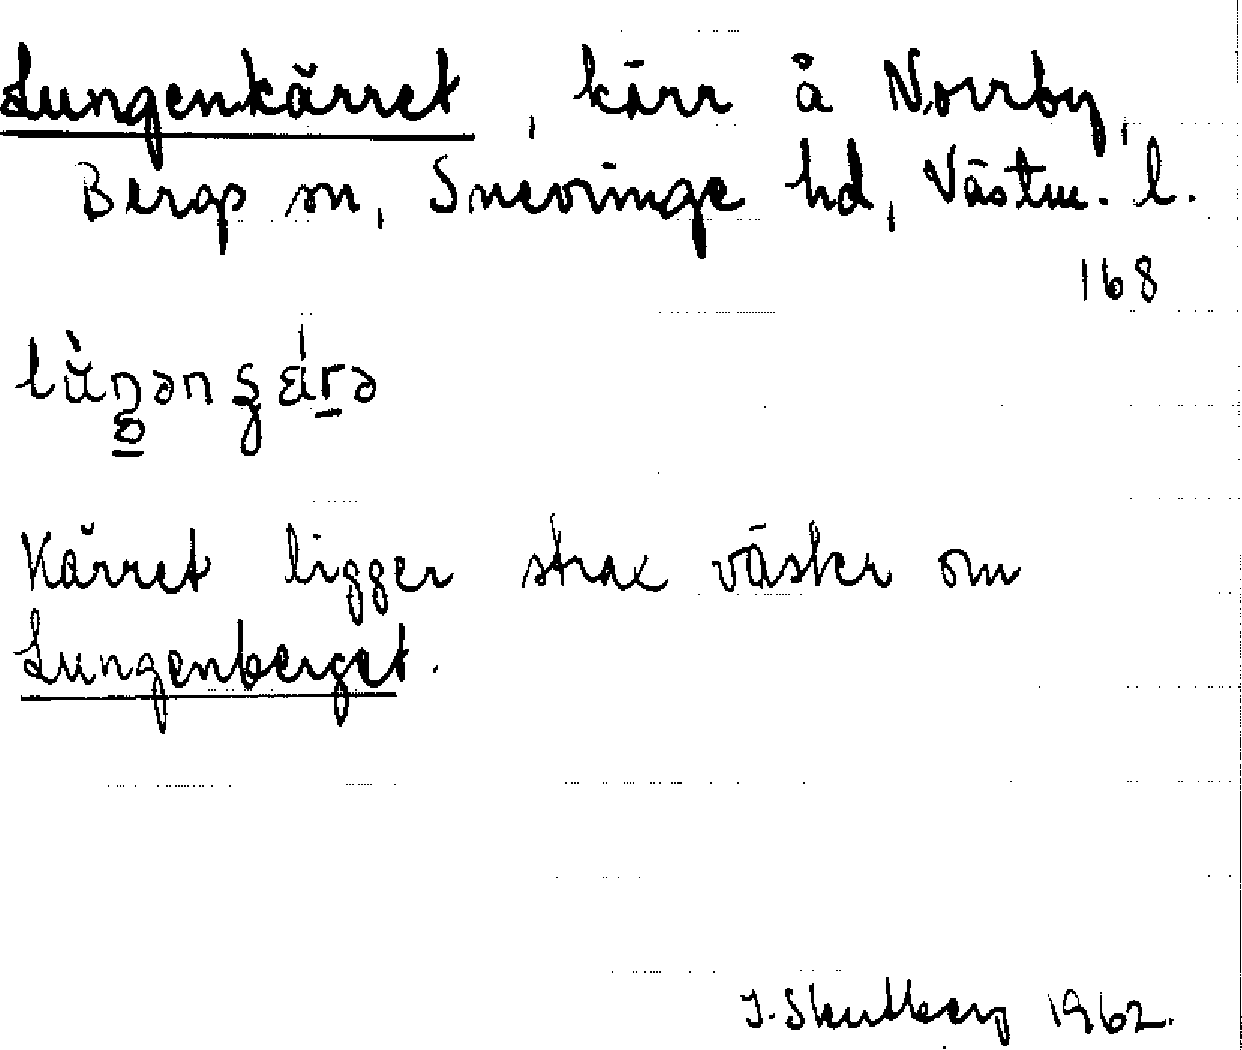 Lungenkärret, kärr å Norrby,
Bergs sn, Snevringe hd, Västm. l.
168
Kärret ligger strax väster om
Lungenberget.
J. Skutberg 1962.